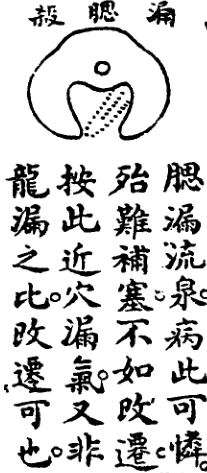 漏腮殺
腮漏流泉。病此可憐。
殆難補塞。不如改遷。
按此近穴漏氣。又非
龍漏之比。改遷可也。